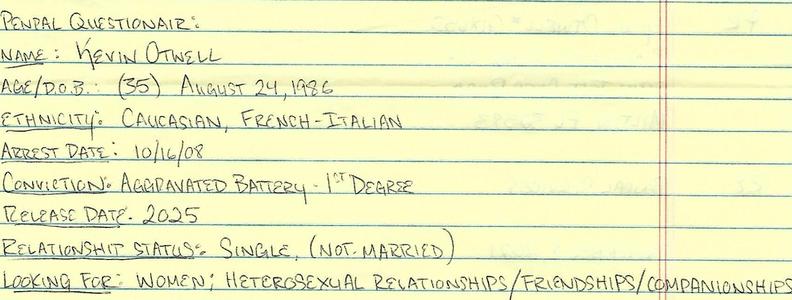 PENPAL QUESTIONAIR:
NAME: KEVIN OTWELL
AGE/D.O.B.: (35) AUGUST 24, 1986
ETHNICITY: CAUCASIAN, FRENCH-ITALIAN
ARREST DATE: 10/16/08
CONVICTION: AGGRAVATED BATTERY - 1ST DEGREE
RELEASE DATE: 2025
RELATIONSHIP STATUS: SINGLE, (NOT MARRIED)
LOOKING FOR: WOMEN; HETEROSEXUAL RELATIONSHIPS/FRIENDSHIPS/COMPANIONSHIPS